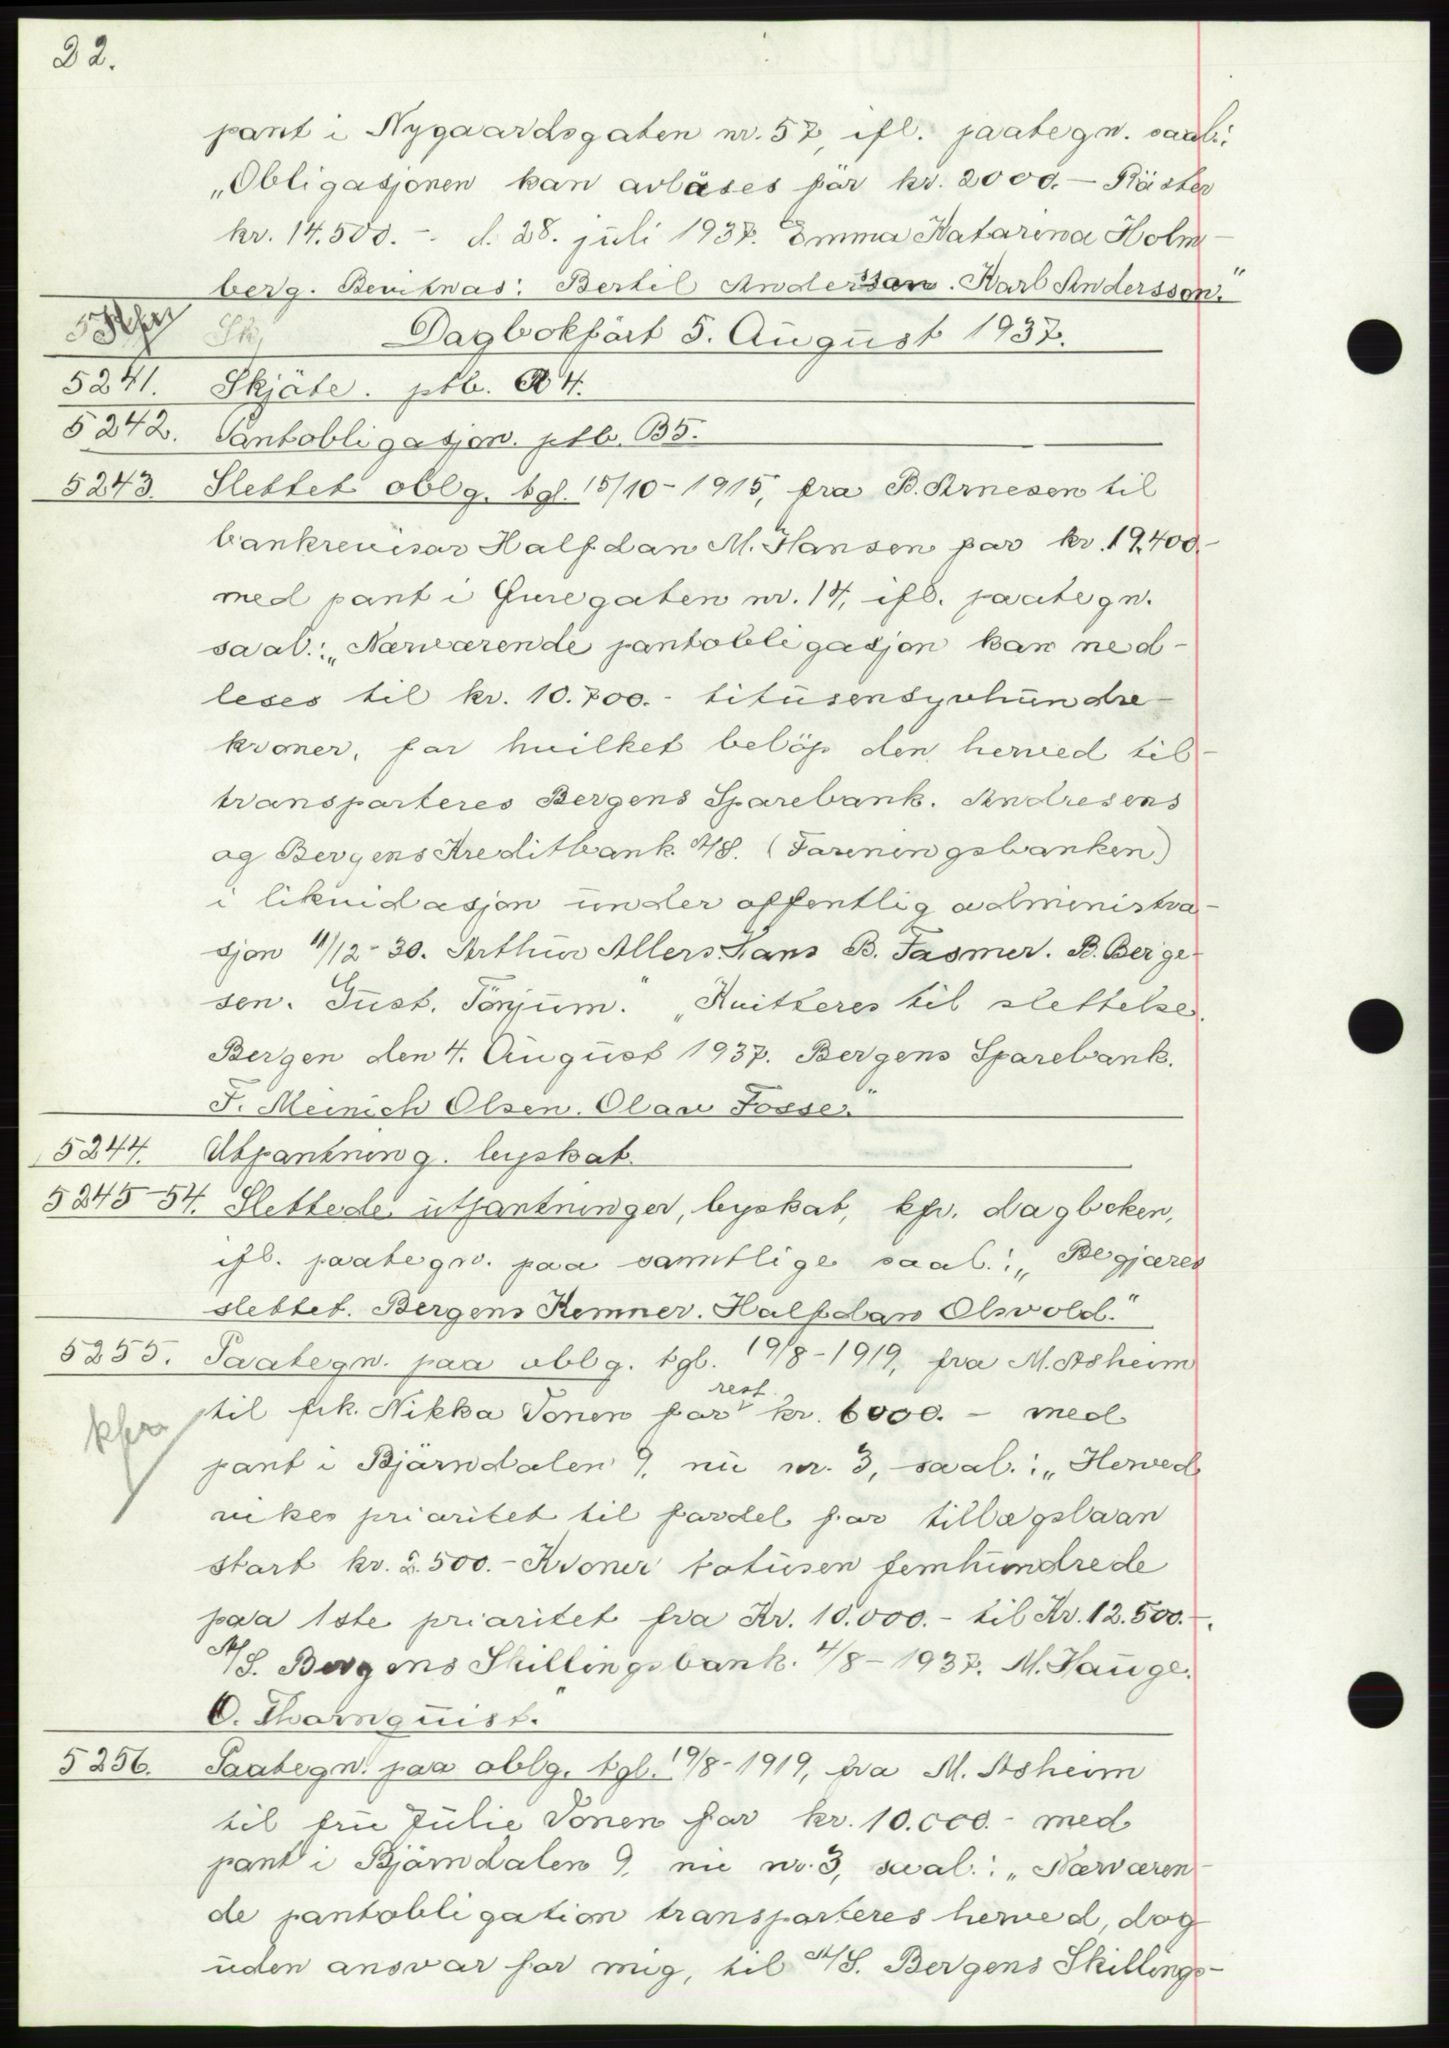 22.
pant i Nygaardsgaten nr. 57, ifl. paategn. saal.:
„Obligasjonen kan avläses får kr. 2000.— Räster
kr. 14.500.— d. 28. juli 1937. Emma Katarina Holm-
berg. Bevitnas: Bertil Andersson. Karl Andersson."
Dagbokfört 5. August 1937.
5241. Skjöte. ptb. A 4.
5242. Pantobligasjon. ptb. B5.
5243. Slettet oblg. tgl. 15/10-1915, fra B. Arnesen til
bankrevisor Halfdan M. Hansen for kr. 19.400.-
med pant i Fjuregaten nr. 14, ifl. paategn.
saal.: „Nærværende pantobligasjon kan ned-
leses til kr. 10.700.- titusensyvhundre
kroner, for hvilket beløp den herved til-
transporteres Bergens Sparebank. Andresens
og Bergens Kreditbank A/S. (Foreningsbanken)
i likvidasjon under offentlig administra-
sjon 11/12-30. Arthur Allers. Hans B. Fasmer. B. Berge-
sen. Gust. Tönjum." „Kvitteres til slettelse.
Bergen den 4. August 1937. Bergens Sparebank.
F. Meinich Olsen. Olav Fosse."
5244. Utpantning. byskat.
5245-54. Slettede utpantninger, byskat, kfr. dagboken,
ifl. paategn. paa samtlige saal.: „Begjæres
slettet. Bergens Kemner. Halfdan Olsvold."
5255. Paategn. paa oblg. tgl. 19/8-1919, fra M. Asheim
kfr. til frk. Nikka Vonen for rest kr. 6000.— med
pant i Björndalen 9, nu nr. 3, saal.: „Herved
vikes prioritet til fordel for tillægslaan
stort kr. 2.500.- Kroner totusen femhundrede
paa 1ste prioritet fra Kr. 10.000.- til Kr. 12.500.-.
A/S. Bergens Skillingsbank. 4/8-1937. M. Hauge.
O. Thornquist."
5256. Paategn. paa oblg. tgl. 19/8-1919, fra M. Asheim
til fru Julie Vonen for kr. 10.000.- med
pant i Björndalen 9, nu nr. 3, saal.: „Nærværen-
de pantobligation transporteres herved, dog
uden ansvar for mig, til A/S. Bergens Skillings-